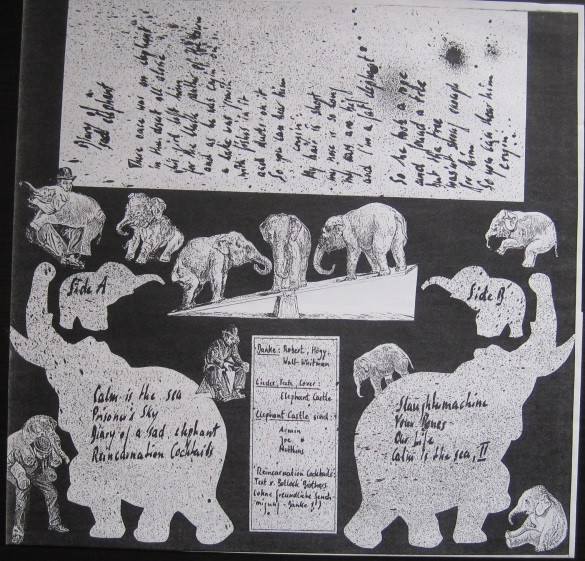 Diary of a
sad elephant
There once was an elephant
in the desert all alone
for the black
and as he was
a lake was
with fishes in it
and ducks on it
So you can hear him
cryin':
My hair is short
my nose is so long
my ears are big
and I'm a fat elephant
So he took a rope
and found a tree
but the tree
wasn't strong enough
for him
So you can hear him
cryin'
Side A
Side B
Calm is the sea
Prisoner's Sky
Diary of a sad elephant
Reincarnation Cocktails
Danke: Robert, Högy,
Walt-Whitman
Lieder, Texte, Cover:
Elephant Castle
Elephant Castle sind:
Armin
Joe
Matthias
'Reincarnation Cocktails'
Text v. Bollock Brothers
(ohne freundliche Geneh-
migung - Danke!)
Slaughtermachine
Your Bones
Our Life
Calm is the sea, II